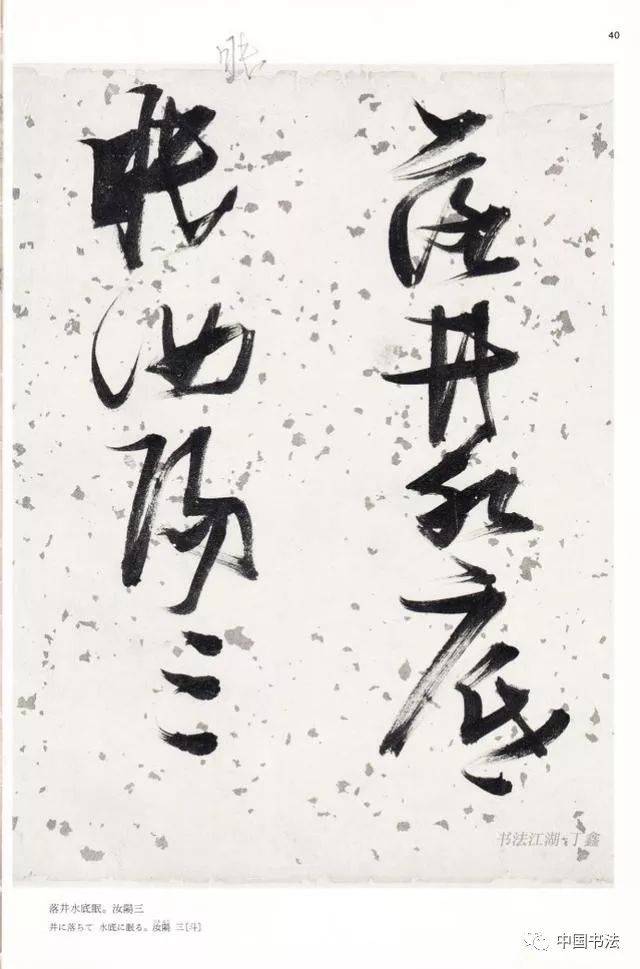 40
眠
落井水底
眠汝陽三
书法江湖-丁鑫
落井水底眠。汝陽三
井に落ちて 水底に眠る。汝陽 三[斗]
中国书法